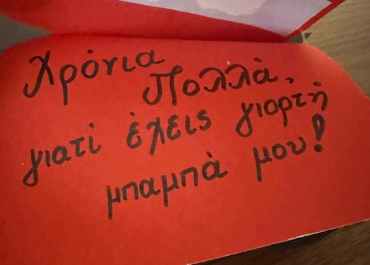 Χρόνια
Πολλά,
γιατί έχεις γιορτή
μπαμπά μου!